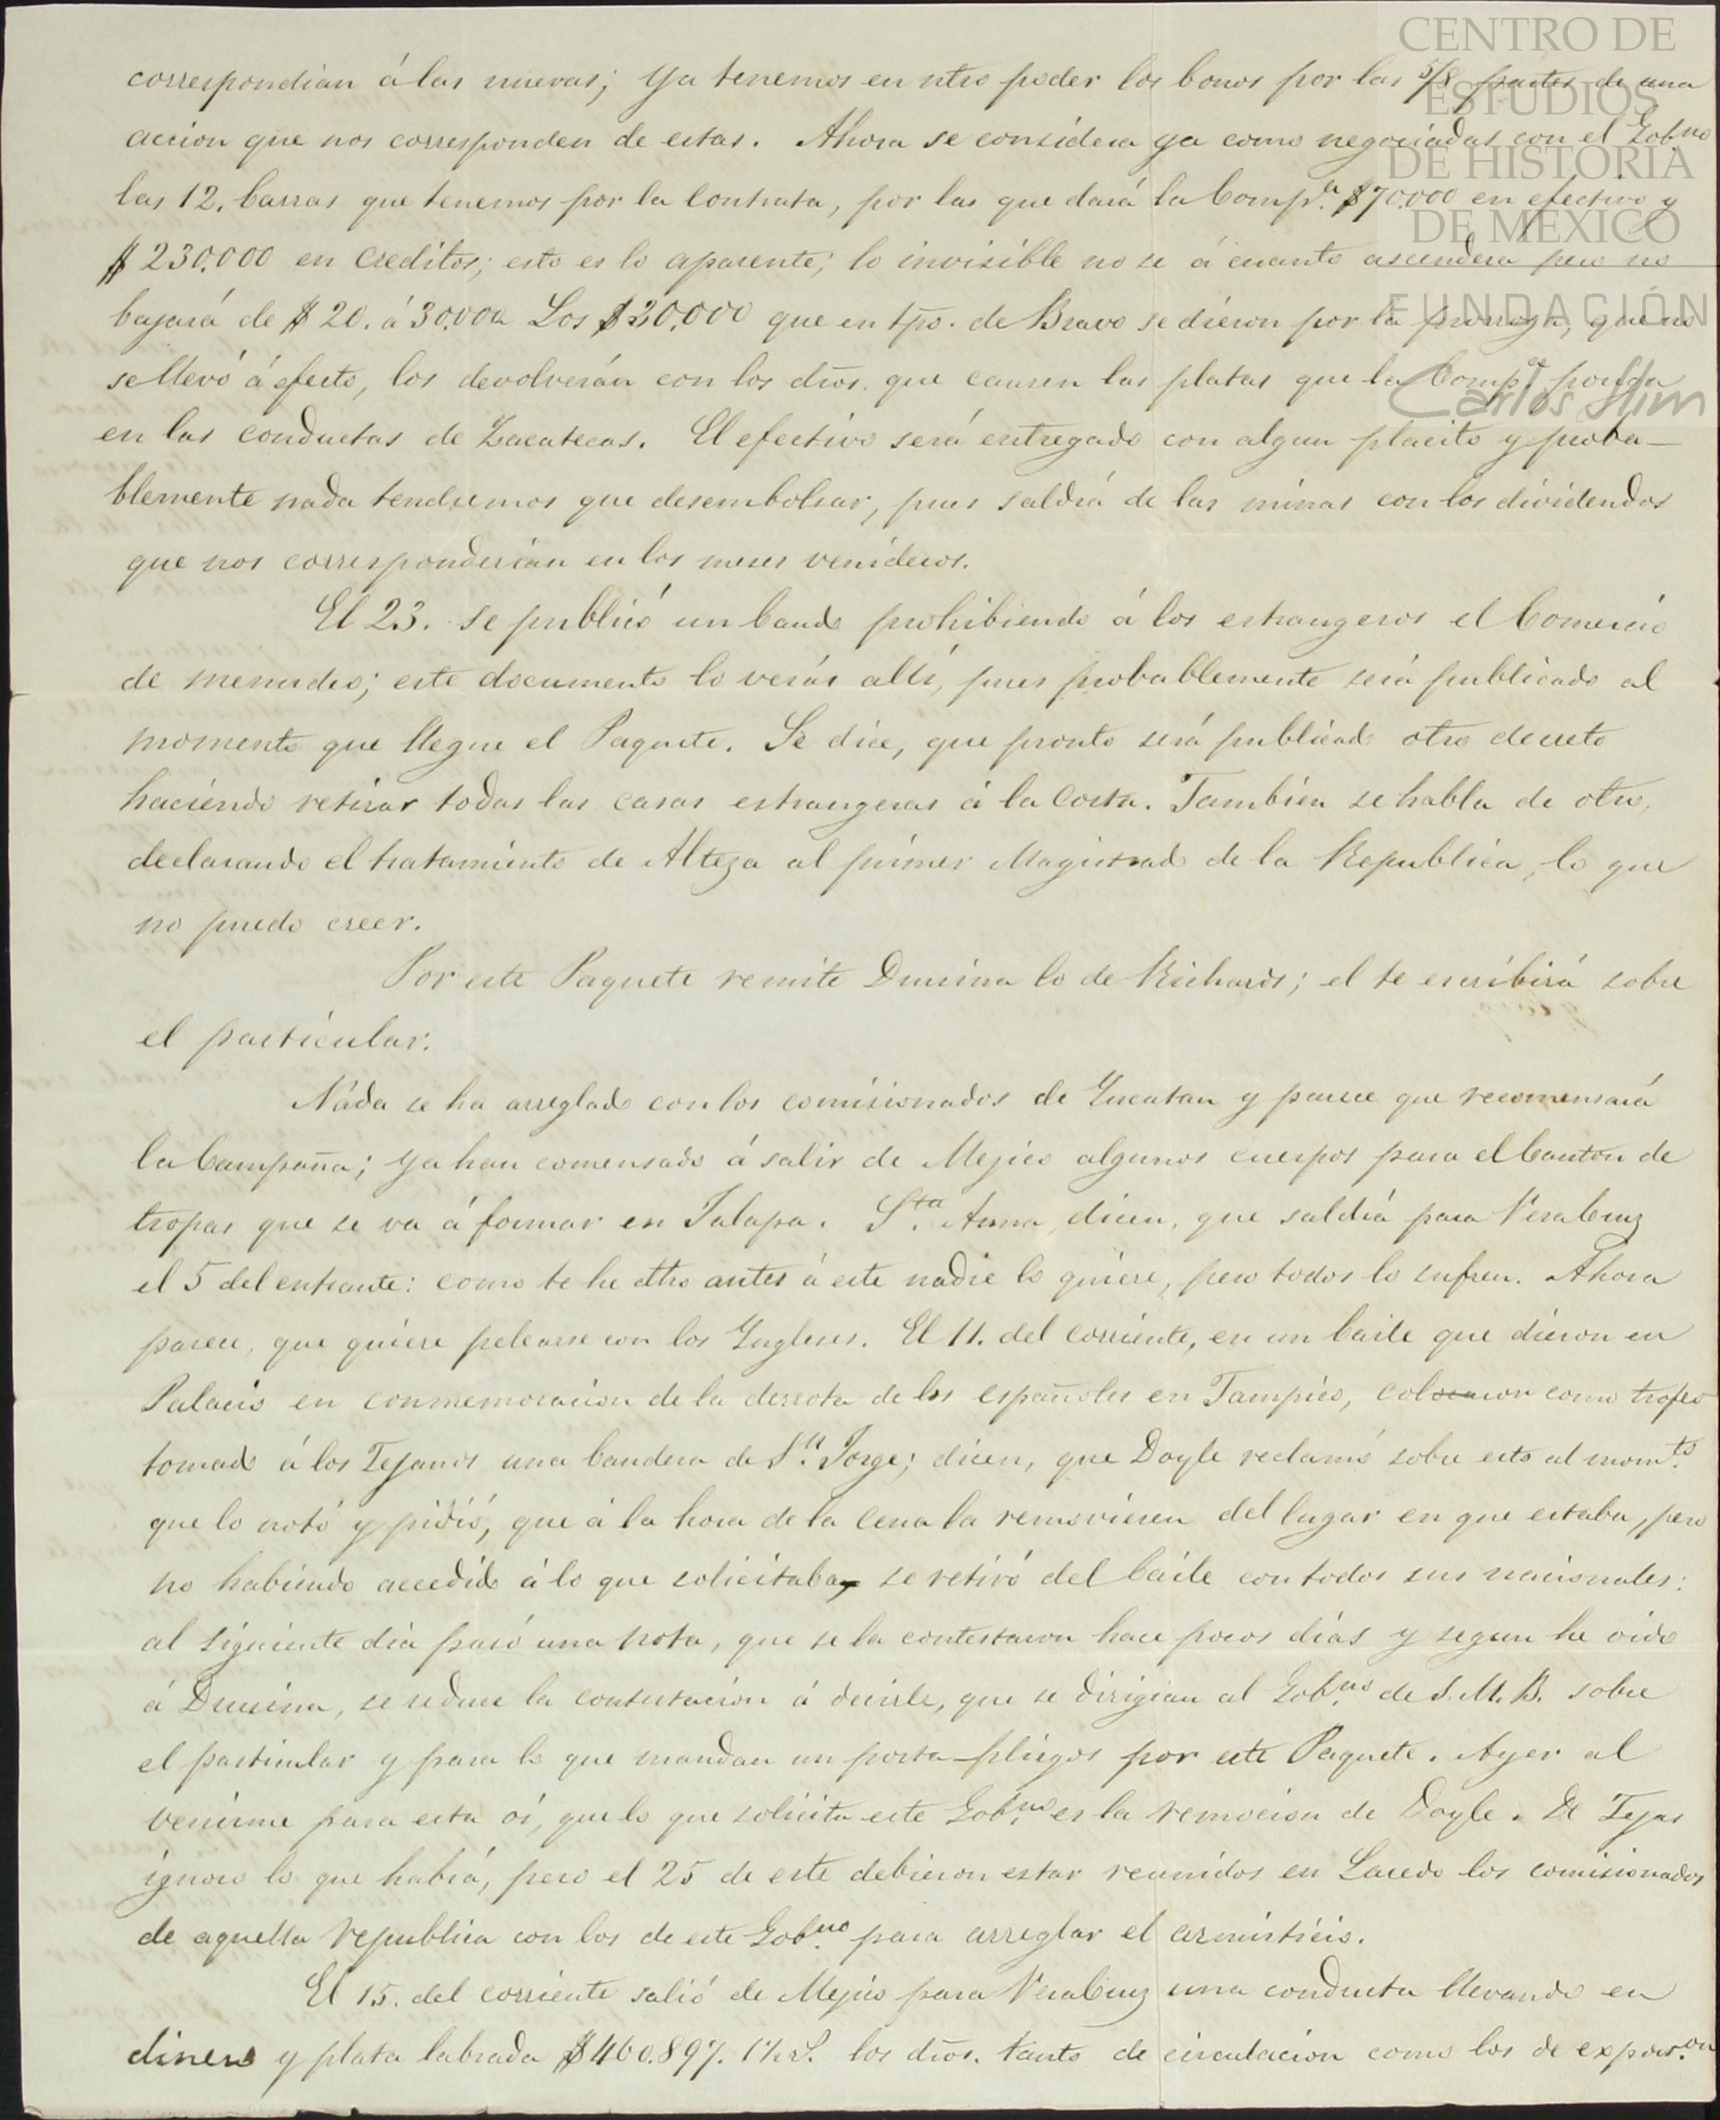 correspondian á las nuevas; ya tenemos en ntro poder los bonos por las 5/8 partes de una
accion que nos corresponden de estas. Ahora se considera ya como negociadas con el Gob.no
las 12. barras que tenemos por la Contrata, por las que dará la Comp.a $70.000 en efectivo y
$230.000 en creditos; esto es lo aparente; lo invisible no se á cuanto ascendera pero no
bajará de $20. á 30.000 Los $30.000 que en tpo. de Bravo se dieron por la prorroga, que no
se llevó á efecto, los devolverán con los dros. que causen las platas que la Comp.a ponga
en las conductas de Zacatecas. El efectivo será entregado con algun placito y proba-
blemente nada tendremos que desembolsar, pues saldrá de las minas con los dividendos
que nos corresponderian en los meses venideros.
El 23. se publicó un bando prohibiendo á los estrangeros el Comercio
de menudeo; este documento lo verás allí, pues probablemente será publicado al
momento que llegue el Paquete. Se dice, que pronto será publicado otro decreto
haciendo retirar todas las casas estrangeras á la Costa. Tambien se habla de otro,
declarando el tratamiento de Alteza al primer Magistrado de la Republica, lo que
no puedo creer.
Por este Paquete remite Drusina lo de Richards; el te escribirá sobre
el particular.
Nada se ha arreglado con los comisionados de Yucatan y parece que recomensará
la Campaña; ya han comensado á salir de Mejico algunos cuerpos para el Canton de
tropas que se va á formar en Jalapa. S.ta Anna, dicen, que saldrá para VeraCruz
el 5 del entrante: como te he dho antes á este nadie lo quiere, pero todos lo sufren. Ahora
parece, que quiere pelearse con los Yngleses. El 11. del corriente, en un baile que dieron en
Palacio en conmemoracion de la derrota de los españoles en Tampico, colocaron como trofeo
tomado á los Tejanos una bandera de S.n Jorge; dicen, que Doyle reclamó sobre esto al mom.to
que lo notó y pidió, que á la hora de la Cena la removiesen del lugar en que estaba, pero
no habiendo accedido á lo que solicitaba, se retiró del baile con todos sus nacionales:
al siguiente dia pasó una nota, que se la contestaron hace pocos días y segun he oido
á Drusina, se reduce la contestacion á decirle, que se dirigian al Gob.no de S. M. B. sobre
el particular y para lo que mandan un porta-pliegos por este Paquete. Ayer al
venirme para esta oí, que lo que solicita este Gob.no es la remocion de Doyle. De Tejas
ignoro lo que habrá, pero el 25 de este debieron estar reunidos en Laredo los comisionados
de aquella republica con los de este Gob.no para arreglar el armisticio.
El 15. del corriente salió de Mejico para VeraCruz una conducta llevando en
dinero y plata labrada $460.897. los dros. tanto de circulacion como los de exporon
CENTRO DE
ESTUDIOS
DE HISTORIA
DE MÉXICO
FUNDACIÓN
Carlos Slim